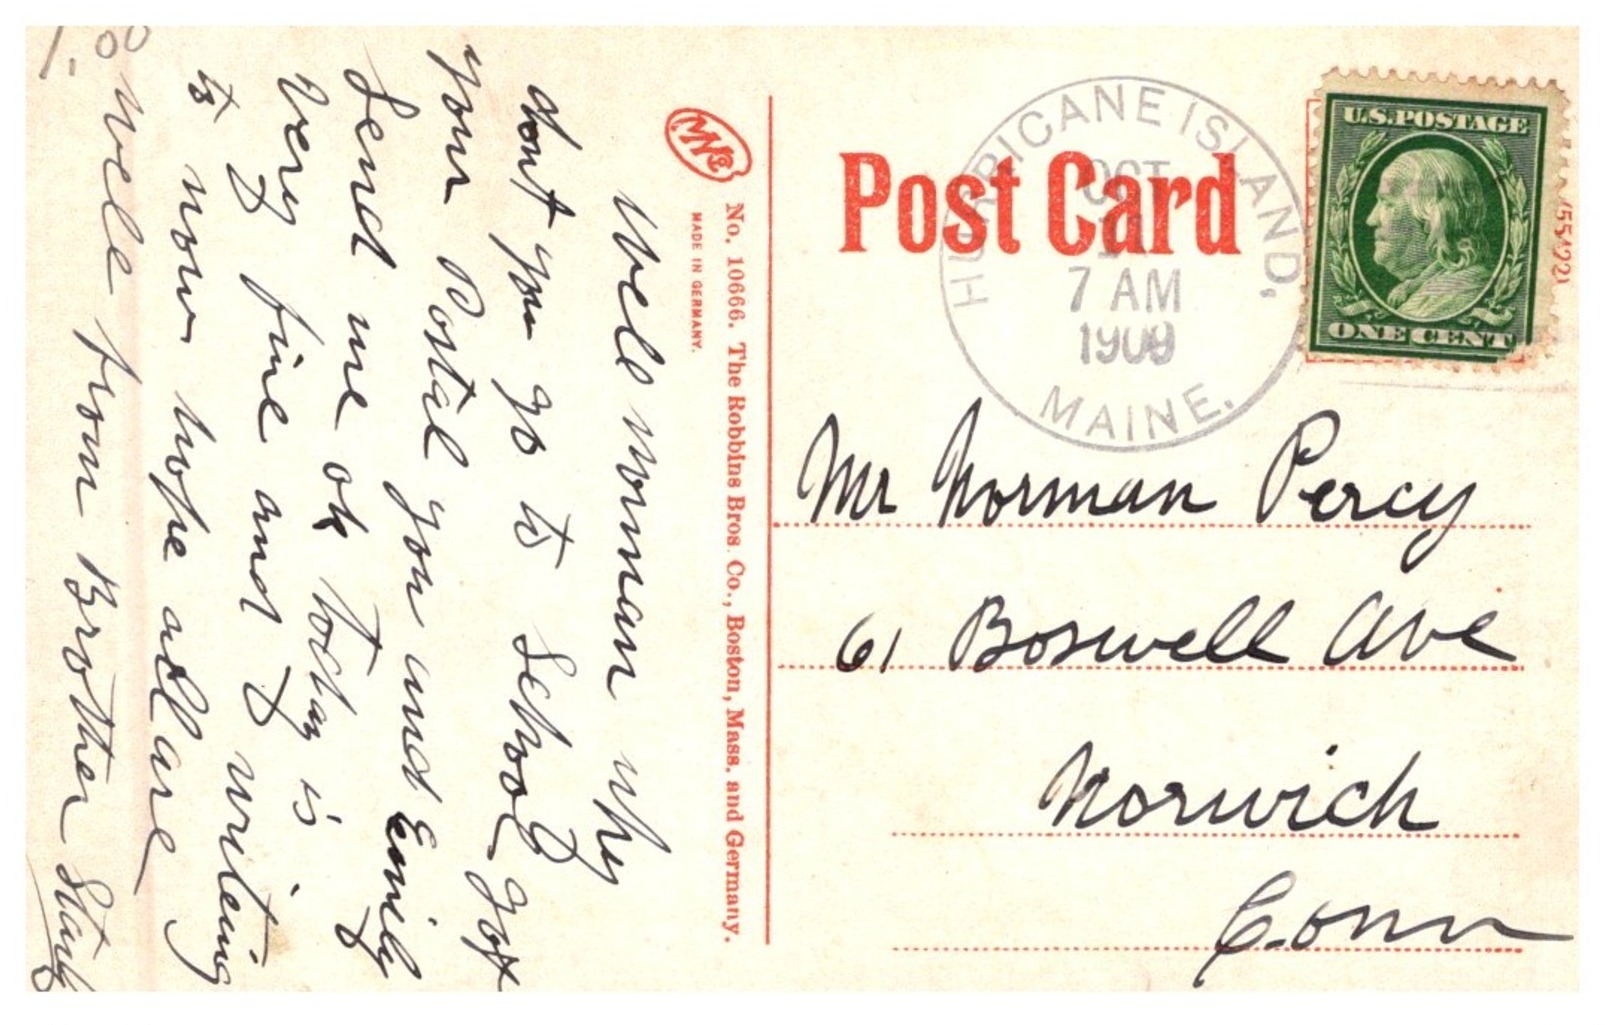 1.00
Well norman why
dont you go to School I got
your Postal you and Emily
Send me ok today is
Very fine and I
I writeing
to now hope all are
well from Brother Stanly
MADE IN GERMANY.
No. 10666. The Robbins Bros. Co., Boston, Mass. and Germany.
Post Card
HURRICANE ISLAND,
OCT
7 AM
1909
MAINE.
U.S. POSTAGE
ONE CENT
Mr Norman Percy
61 Boswell Ave
Norwich
Conn